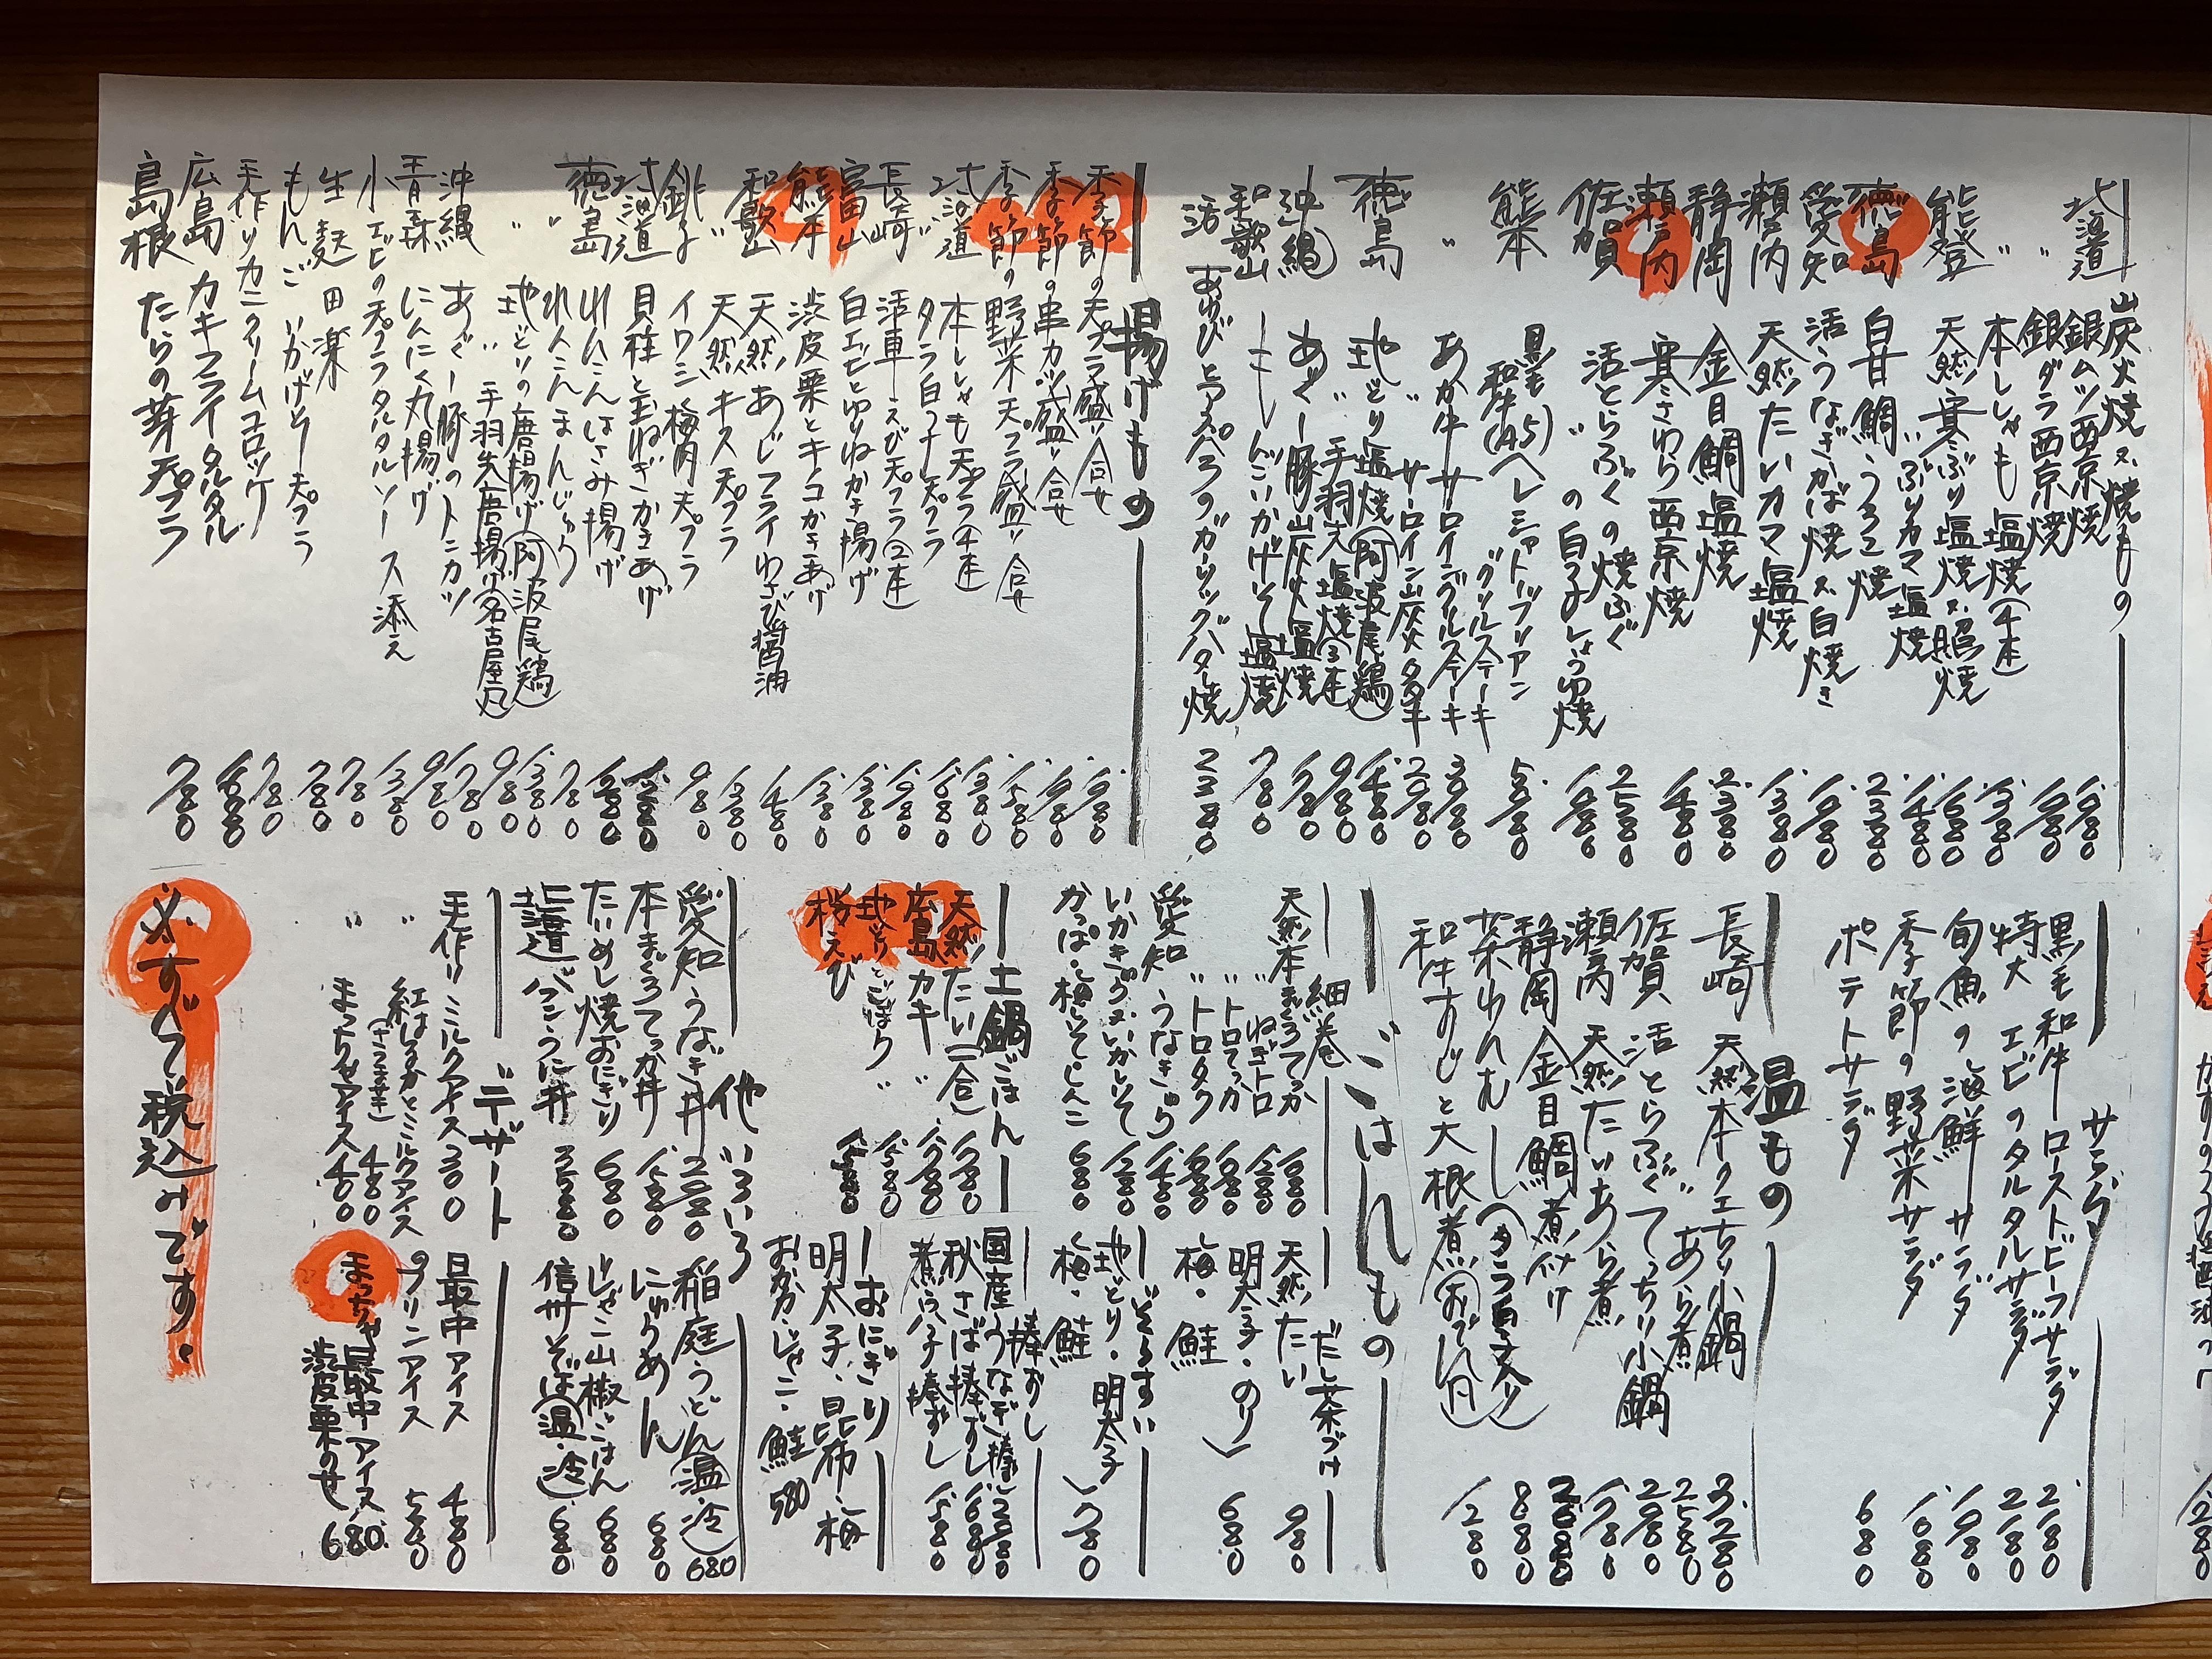 炭火焼又焼もの
北海道 銀ムツ西京焼 1.980
〃 銀ダラ西京焼 1.980
〃 本ししゃも塩焼(4本) 1.380
能登 天然寒ぶり塩焼又照焼 1.680
〃 ぶりカマ塩焼 1.480
徳島 白甘鯛うろこ焼 2.380
愛知 活うなぎかば焼又白焼き 1.980
瀬戸内 天然たいカマ塩焼 1.380
静岡 金目鯛塩焼 2.380
瀬戸内 寒さわら西京焼 1.480
佐賀 活とらふぐの焼ふぐ 2.580
〃 の白子しょうゆ焼 1.980
熊本 黒毛和牛(A5)ヘレシャトーブリアングリルステーキ 5.180
〃 あか牛サーロイングリルステーキ
〃 サーロイン山炭火タタキ
徳島 地とり塩焼(阿波尾鶏) 1.480
〃 手羽先塩焼(3本) 980
沖縄 あぐー豚山炭火塩焼 1.780
和歌山 しんこいかげそ塩焼 780
活あわびとアスパラのガーリックバター焼 2.380
揚げもの
季節の天プラ盛り合せ 1.980
季節の串カツ盛り合せ 1.980
季節の野菜天プラ盛り合せ 1.580
北海道 本ししゃも天プラ(4本) 1.380
〃 タラ白子天プラ 1.680
長崎 活車えび天プラ(2本) 1.980
富山 白エビとゆりねかき揚げ 1.380
熊本 渋皮栗とキノコかきあげ 1.380
和歌山 天然あじフライわさび醤油 1.480
〃 天然キス天プラ 1.380
銚子 イワシ梅肉天プラ 980
北海道 貝柱と玉ねぎかきあげ
れんこんはさみ揚げ
れんこんまんじゅう 780
徳島 地とりの唐揚げ(阿波尾鶏) 1.380
〃 手羽先唐揚げ(名古屋風) 980
沖縄 あぐー豚のトンカツ 1.780
青森 にんにく丸揚げ 980
小エビの天プラタルタルソース添え 1.380
生麩田楽 780
もんごいかげそー天プラ 780
手作りカニクリームコロッケ 780
広島 カキフライタルタル
島根 たらの芽天プラ 780
サラダ
黒毛和牛ローストビーフサラダ 2.180
特大エビのタルタルサラダ 2.180
旬魚の海鮮サラダ 1.980
季節の野菜サラダ 1.680
ポテトサラダ 680
温もの
長崎 天然本クエちり小鍋 3.280
〃 あら煮 2.580
佐賀 活とらふぐてっちり小鍋 2.980
瀬戸内 天然たいあら煮 1.780
静岡 金目鯛煮付け
茶わんむし(タラ白子入り) 880
和牛すじと大根煮(おでん風) 1.280
ごはんもの
細巻
天然本まぐろてっか 1.080
〃 ねぎトロ 1.280
〃 トロてっか
〃 トロタク
愛知 うなきゅう 1.480
いかきゅう又いかしそ 1.280
かっぱ・梅しそ・しんこ 680
だし茶づけ
天然たい 980
明太子・のり
梅・鮭 680
ぞうすい
地とり・明太子
梅・鮭 780
土鍋ごはん
天然たい(一合) 1.780
広島 カキ 〃 1.780
地とりとごぼう 〃 1.580
桜えび
棒ずし
国産うなぎ棒ずし 2.980
秋さば棒ずし 1.680
煮穴子棒ずし 1.580
おにぎり
明太子・昆布・梅
おかか・じゃこ・鮭 580
他いろいろ
愛知 うなぎ丼
本まぐろてっか丼 1.580
たいめし焼おにぎり 680
北海道 バフンうに丼 3.580
稲庭うどん(温・冷) 680
にゅうめん 680
じゃこ山椒ごはん 680
信州そば(温・冷) 680
デザート
手作りミルクアイス 300
〃 紅はるかとミルクアイス(さつま芋) 480
〃 まっちゃアイス 400
最中アイス 480
プリンアイス 580
まっちゃ最中アイス渋皮栗のせ 680
※すべて税込みです。